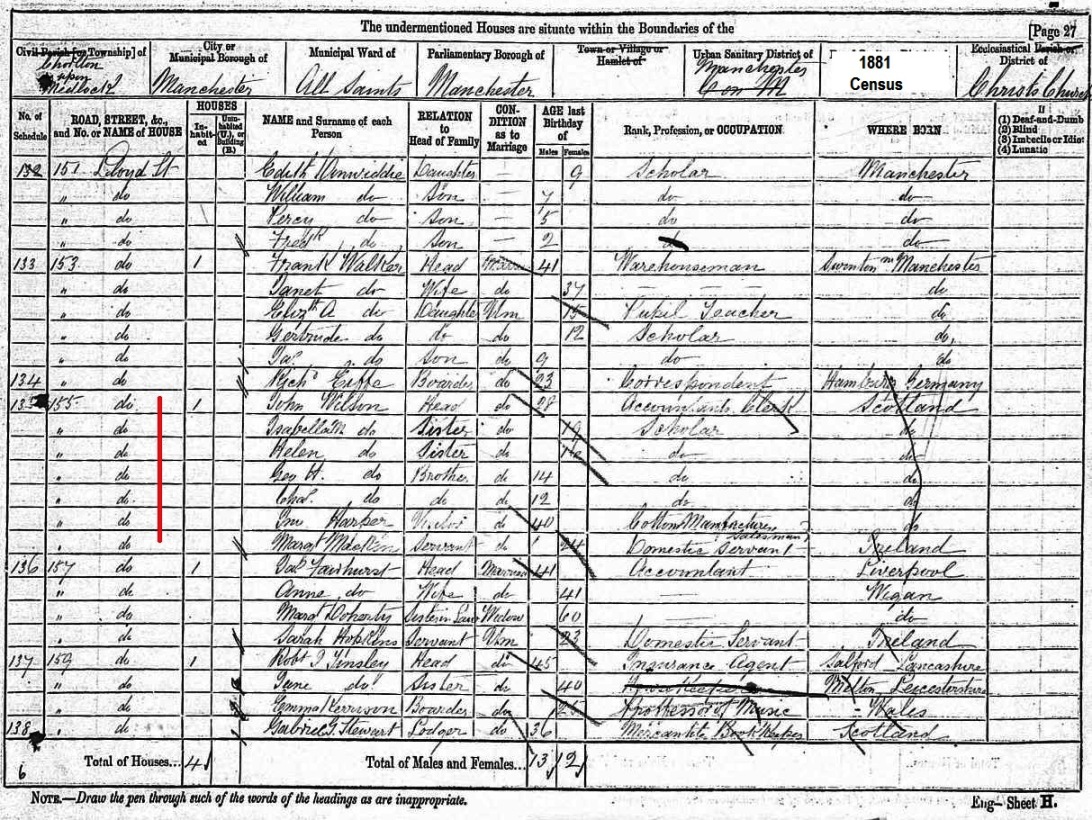 The undermentioned Houses are situate within the Boundaries of the [Page 27
Civil Parish [or Township] of City or Municipal Borough of Municipal Ward of Parliamentary Borough of Town or Village or Hamlet of Urban Sanitary District of 1881 Census Ecclesiastical Parish or District of
Chorlton upon Medlock Manchester All Saints Manchester Manchester Christ Church
No. of Schedule ROAD, STREET, &c., and No. or NAME of HOUSE HOUSES Inhabited Uninhabited (U.), or Building (B.) NAME and Surname of each Person RELATION to Head of Family CONDITION as to Marriage AGE last Birthday of Males Females Rank, Profession, or OCCUPATION WHERE BORN If (1) Deaf-and-Dumb (2) Blind (3) Imbecile or Idiot (4) Lunatic
132 151 Lloyd St Edith Dinwiddie Daughter — 9 Scholar Manchester
" do William do Son — 7 do do
" do Percy do Son — 5 do do
" do Fredk do Son — 2 do do
133 153 do 1 Frank Walker Head Marr 41 Warehouseman Swinton Manchester
" do Janet do Wife do 37 — do
" do Elizth A do Daughter Unm 15 Pupil Teacher do
" do Gertrude do do do 12 Scholar do
" do Jas do Son do 9 do do
134 " do Richd Boarder do 23 Correspondent Hamburg Germany
135 155 do 1 John Wilson Head do 28 Accountants Clerk Scotland
" do Isabella M do Sister do 19 Scholar do
" do Helen do Sister do do do
" do Geo H. do Brother do 14 do do
" do Chas. do do do 12 do do
" do Jno Harper Visitor do 40 Cotton Manufacturers Salesman do
" do Margt Servant do 24 Domestic Servant Ireland
136 157 do 1 Jas Fairhurst Head Married 41 Accountant Liverpool
" do Anne do Wife do 41 — Wigan
" do Mary Doherty Sister in Law Widow 60 — do
" do Sarah Hopkins Servant Unm 23 Domestic Servant Ireland
137 159 do 1 Robt J Tinsley Head do 45 Insurance Agent Salford Lancashire
" do Jane do Sister do 40 Housekeeper Leicestershire
" do Emma Boarder do 25 Professor of Music Wales
138 " do Gabriel G. Stewart Lodger do 36 Mercantile Book Keeper Scotland
6 Total of Houses... 4 Total of Males and Females... 13 12
NOTE.—Draw the pen through such of the words of the headings as are inappropriate. Eng— Sheet H.